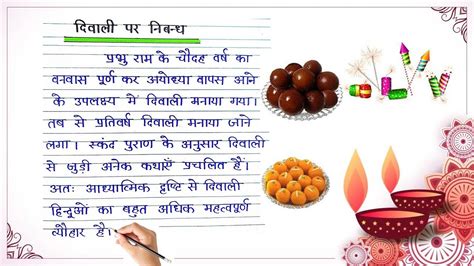 दिवाली पर निबन्ध
प्रभु राम के चौदह वर्ष का
वनवास पूर्ण कर अयोध्या वापस आने
के उपलक्ष्य में दिवाली मनाया गया।
तब से प्रतिवर्ष दिवाली मनाया जाने
लगा। स्कंद पुराण के अनुसार दिवाली
से जुड़ी अनेक कथाएँ प्रचलित है।
अतः आध्यात्मिक दृष्टि से दिवाली
हिन्दुओं का बहुत अधिक महत्वपूर्ण
त्यौहार है।